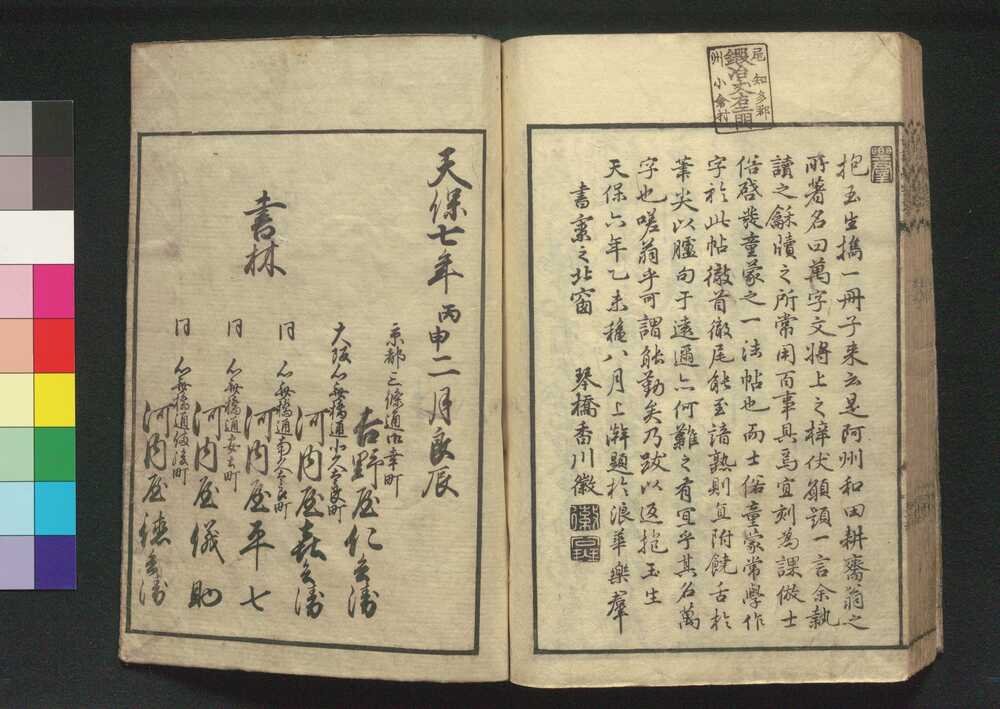 尾 知多郡
州 小倉村
鍛冶文左エ門
抱玉生携一冊子来云是阿州和田耕齋翁之
所著名曰萬字文将上之梓伏願題一言余執
讀之龢牘之所常用百事具焉宜刻為課倣士
俗啓發童蒙之一法帖也而士俗童蒙常學作
字於此帖徹首徹尾能至諳熟則負附饒舌於
筆尖以臚句于遠邇亦何難之有宜乎其名萬
字也嗟翁乎可謂能勤矣乃跋以返抱玉生
天保六年乙未穐八月上澣題於浪華樂群
書室之北窗 琴橋香川徽
天保七年丙申二月良辰
書林
京都三條通御幸町
吉野屋仁兵衛
大阪心斎橋通北久太郎町
河内屋喜兵衛
同 心斎橋通南久太郎町
河内屋平七
同 心斎橋通安土町
河内屋儀助
同 心斎橋通備後町
河内屋徳兵衛